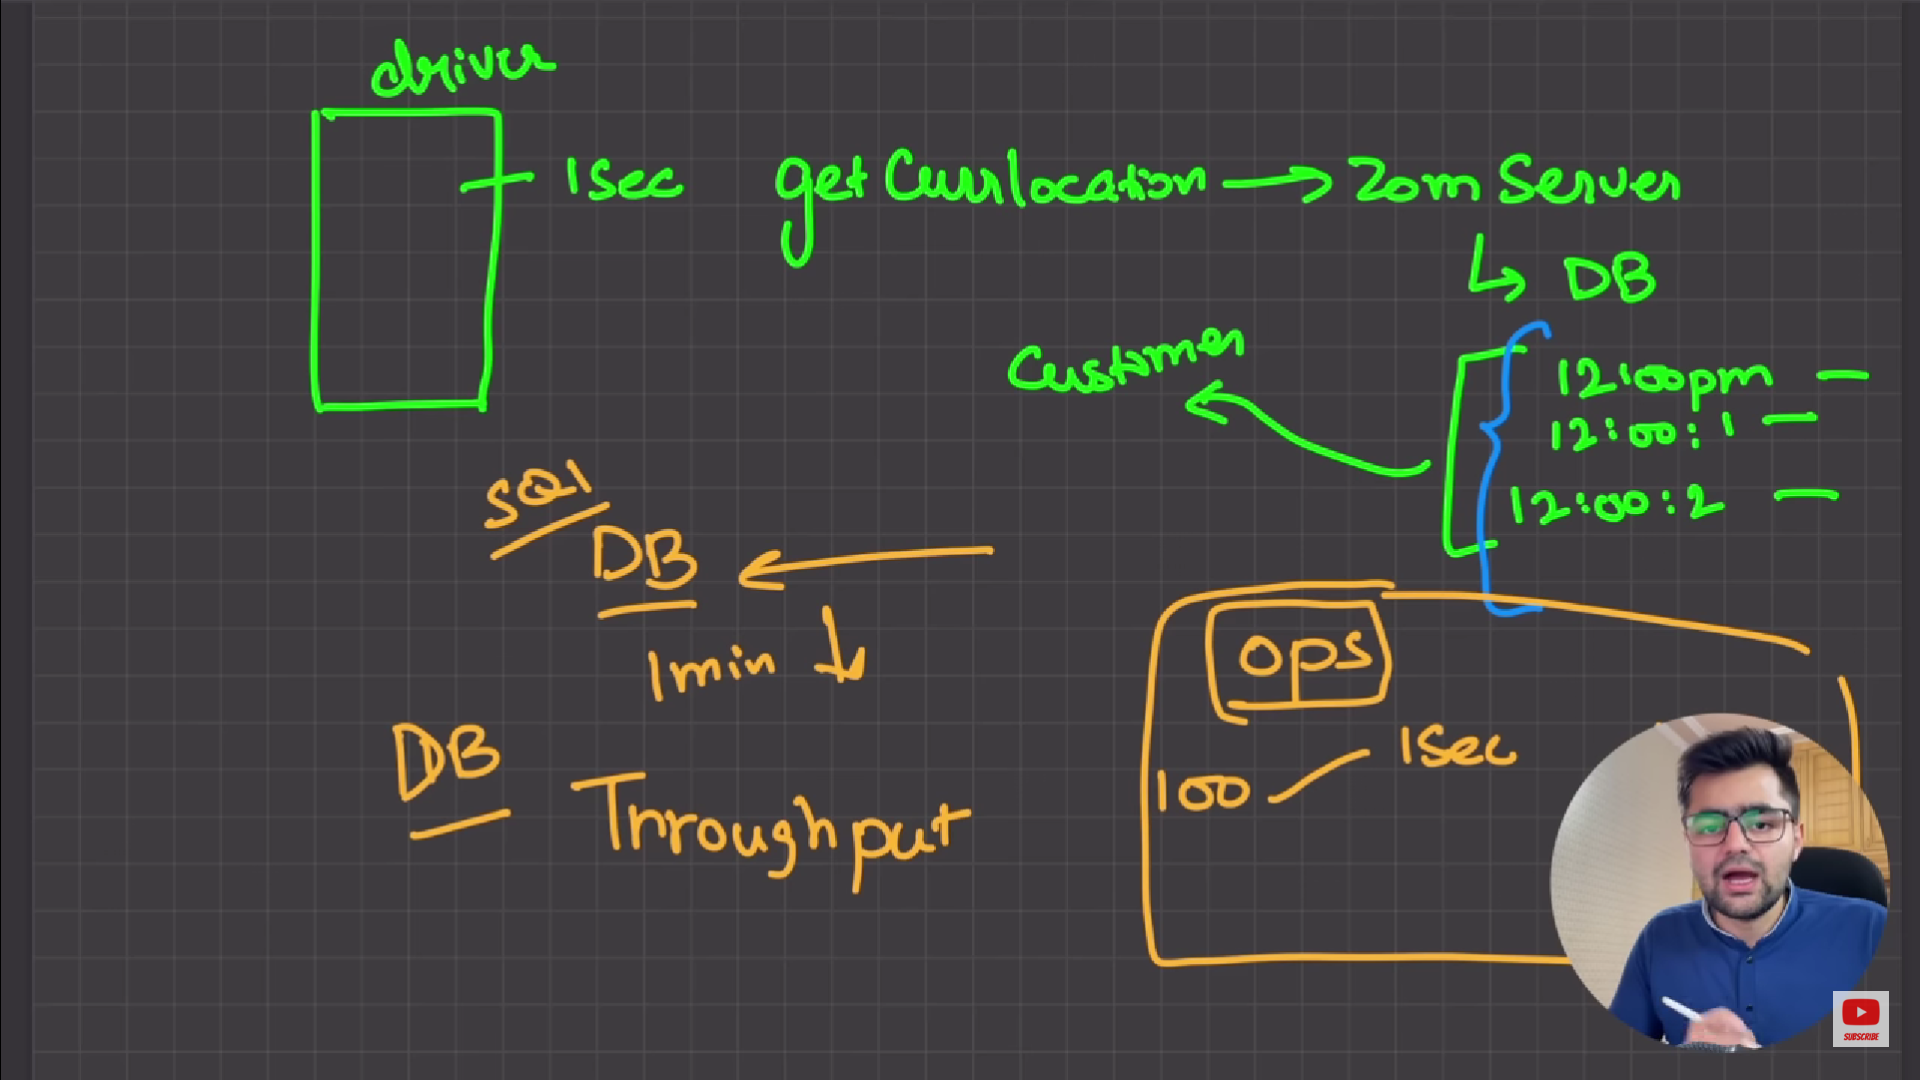 driver
1sec getCurrlocation → Zom Server
DB
Customer
12:00pm —
12:00:1 —
12:00:2 —
SQl
DB
1min
ops
DB
Throughput
100
1sec
SUBSCRIBE